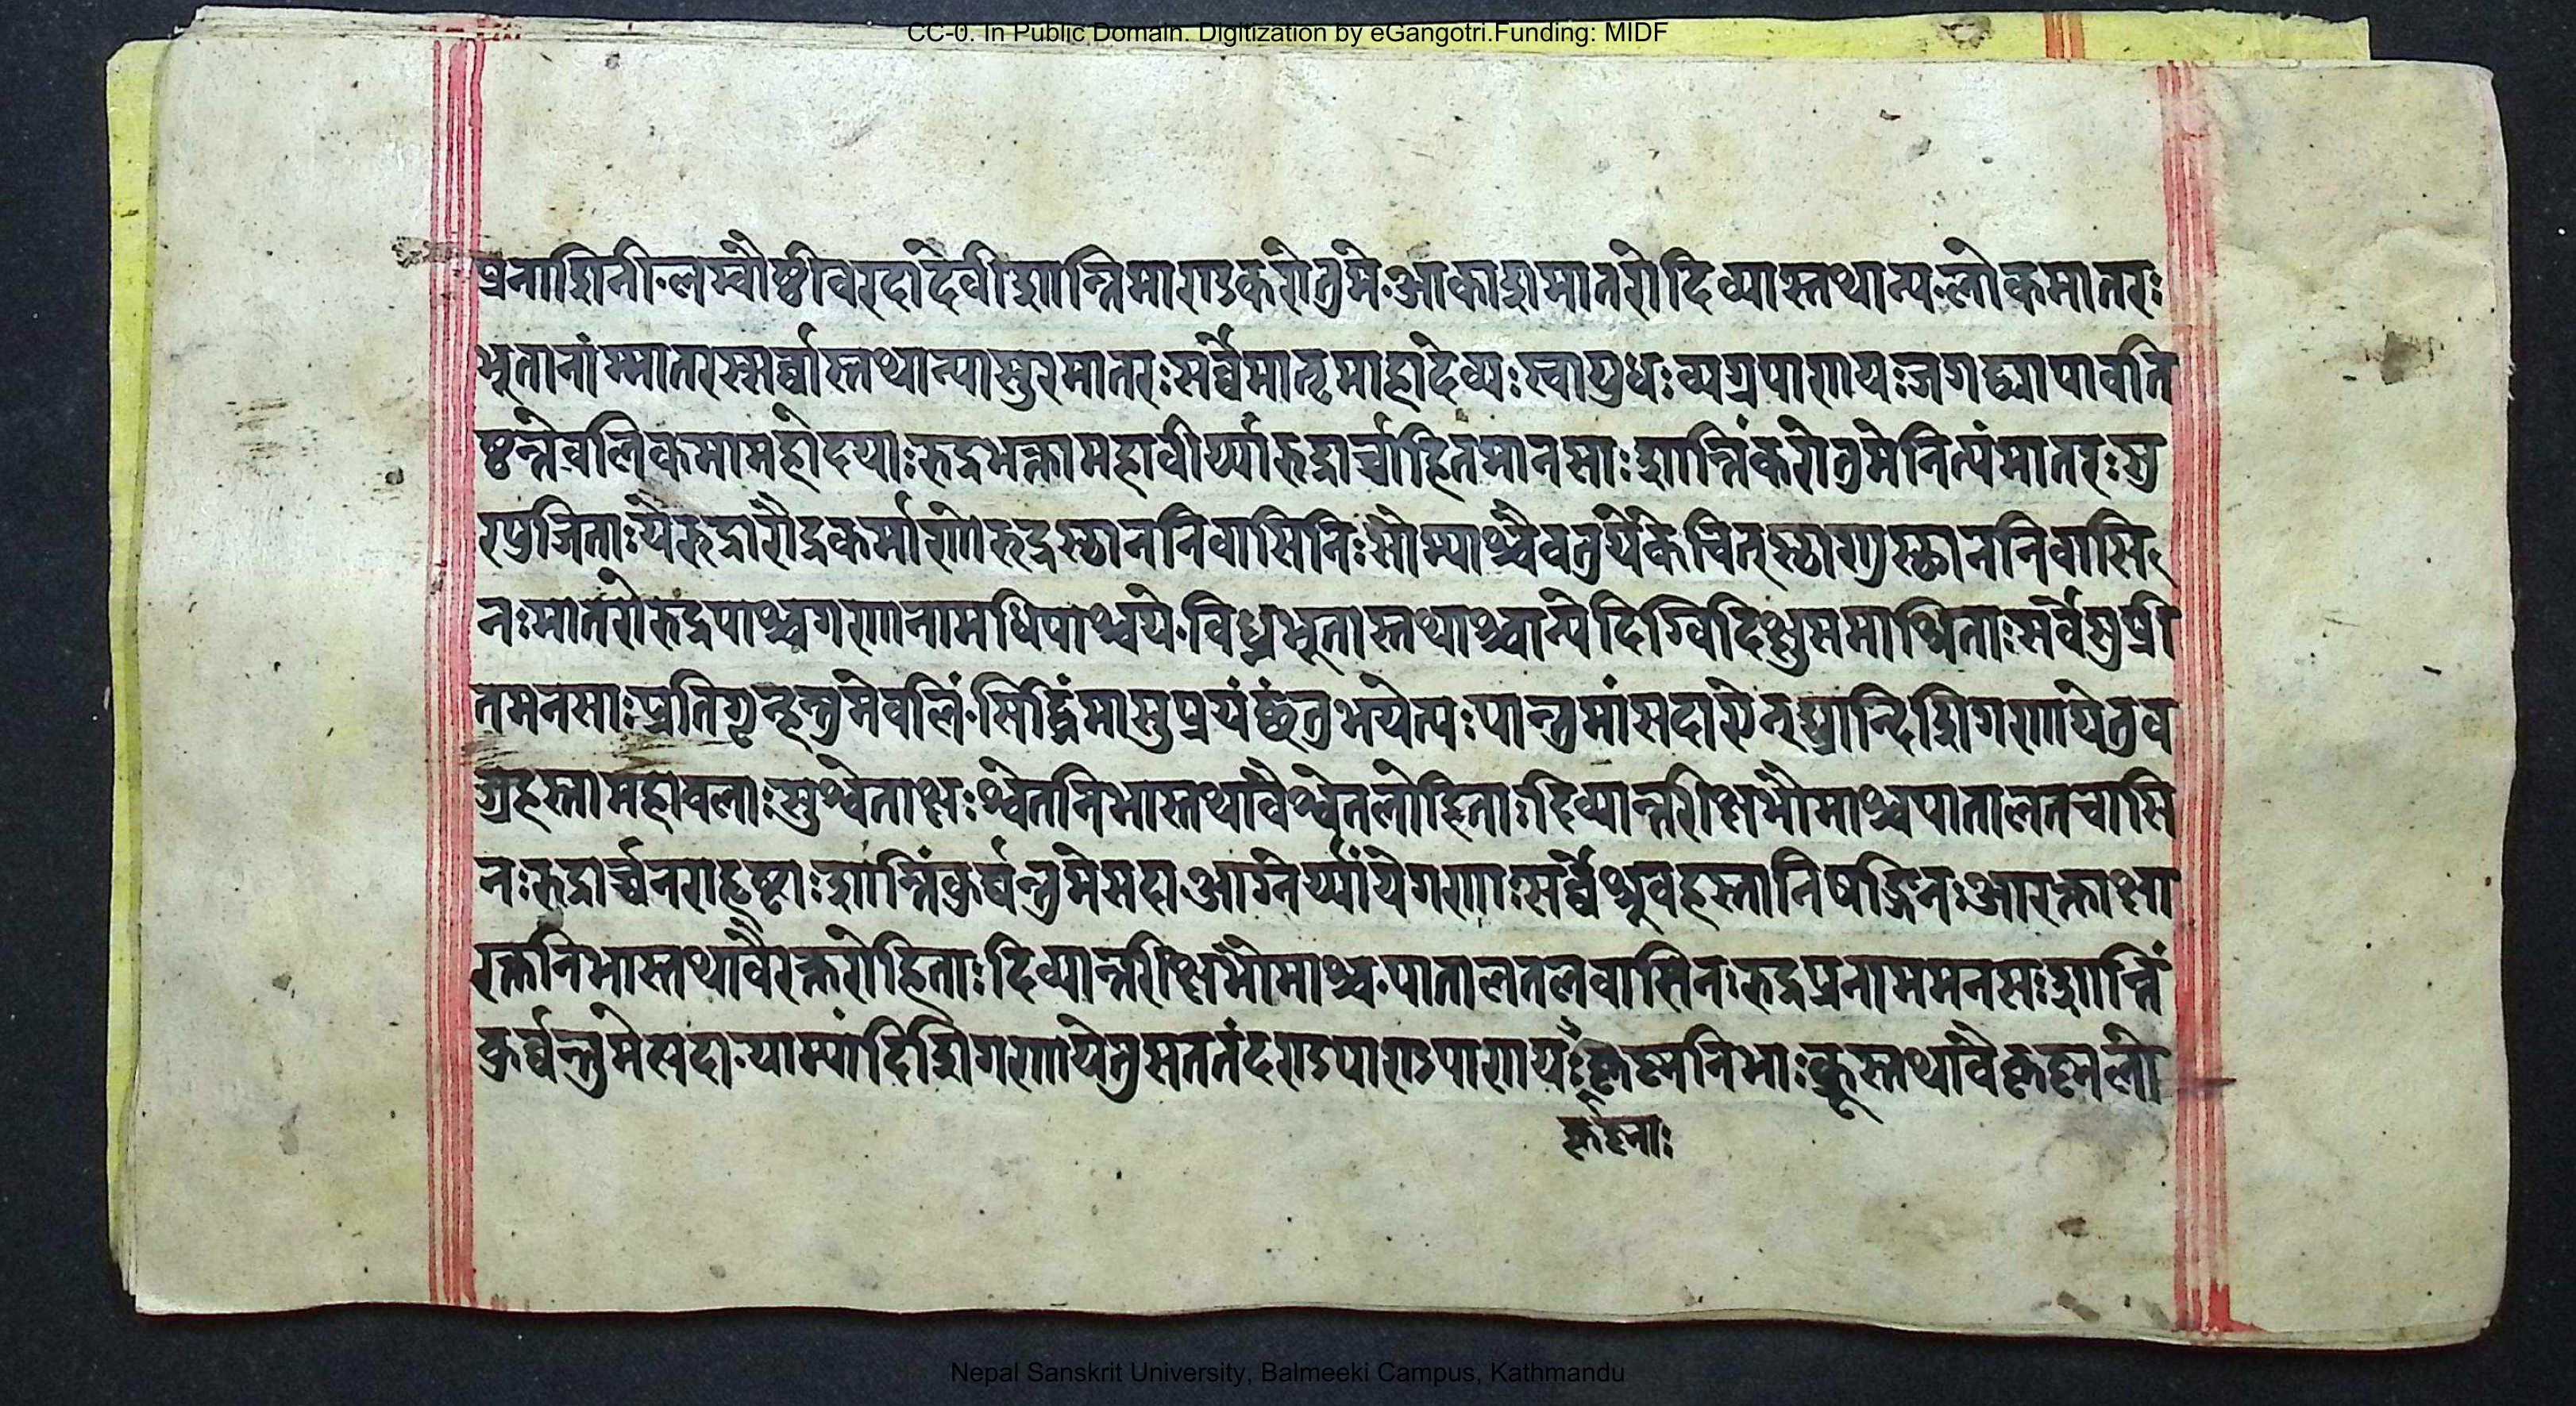 CC-0. In Public Domain. Digitization by eGangotri.Funding: MIDF
प्रनाशिनी॰लम्वौष्ठीवरदादेवीशान्तिमाशुकरोतुमे॰आकाशमातरोदिव्यास्तथान्य॰लोकमातरः
भुतानांम्मातरस्सर्व्वास्तथान्यासुरमातरः सर्व्वेमातृमाहादेव्यः स्वायुधः व्यग्रपाणयः जगद्व्यापावति
ष्ठन्तेवलिकमामहोदयाः रुद्रभक्तामहावीर्य्यारुद्रार्चाहितमानसाः शान्तिंकरोतुमेनित्यंमातरः सु
रपुजिताः येरुद्रारौद्रकर्माणोरुद्रस्थाननिवासिनिः सोम्याश्चैवतुयेकेचित्स्थाणुस्थाननिवासि
नः मातरोरुद्रपाश्चगणानामधिपाश्चये॰विघ्नभूतास्तथाश्चान्येदिग्विदिक्षुसमाश्रिताः सर्वेसुप्री
तमनसाः प्रतिगृन्हन्तुमेवलिं॰सिद्धिंमासुप्रयंछंतुभयेत्यः पान्तुमांसदा
ग्रहस्तामहावलाः सुश्वेताक्षः श्वेतनिभास्तथावैश्वेतलोहिताः दिव्यान्तरीक्षभौमाश्चपातालतचासि
नः रुद्रार्च्चनराहृष्टाः शान्तिंकुर्व्वन्तुमेसदा॰आग्नेर्य्यांयेगणाः सर्व्वेश्रुवहस्तानिषङ्गिनः आरक्ताक्षा
रक्तनिभास्तथावैरक्तरोहिताः दिव्यान्तरीक्षभोमाश्च॰पातालतलवासिनः रुद्रप्रनाममनसः शान्तिं
कुर्व्वन्तुमेसदा॰याम्यांदिशिगणायेतुसततंदण्डपाणयः कृष्णनिभाः क्रूस्तथावैकृष्णलो
कृष्णाः
Nepal Sanskrit University, Balmeeki Campus, Kathmandu